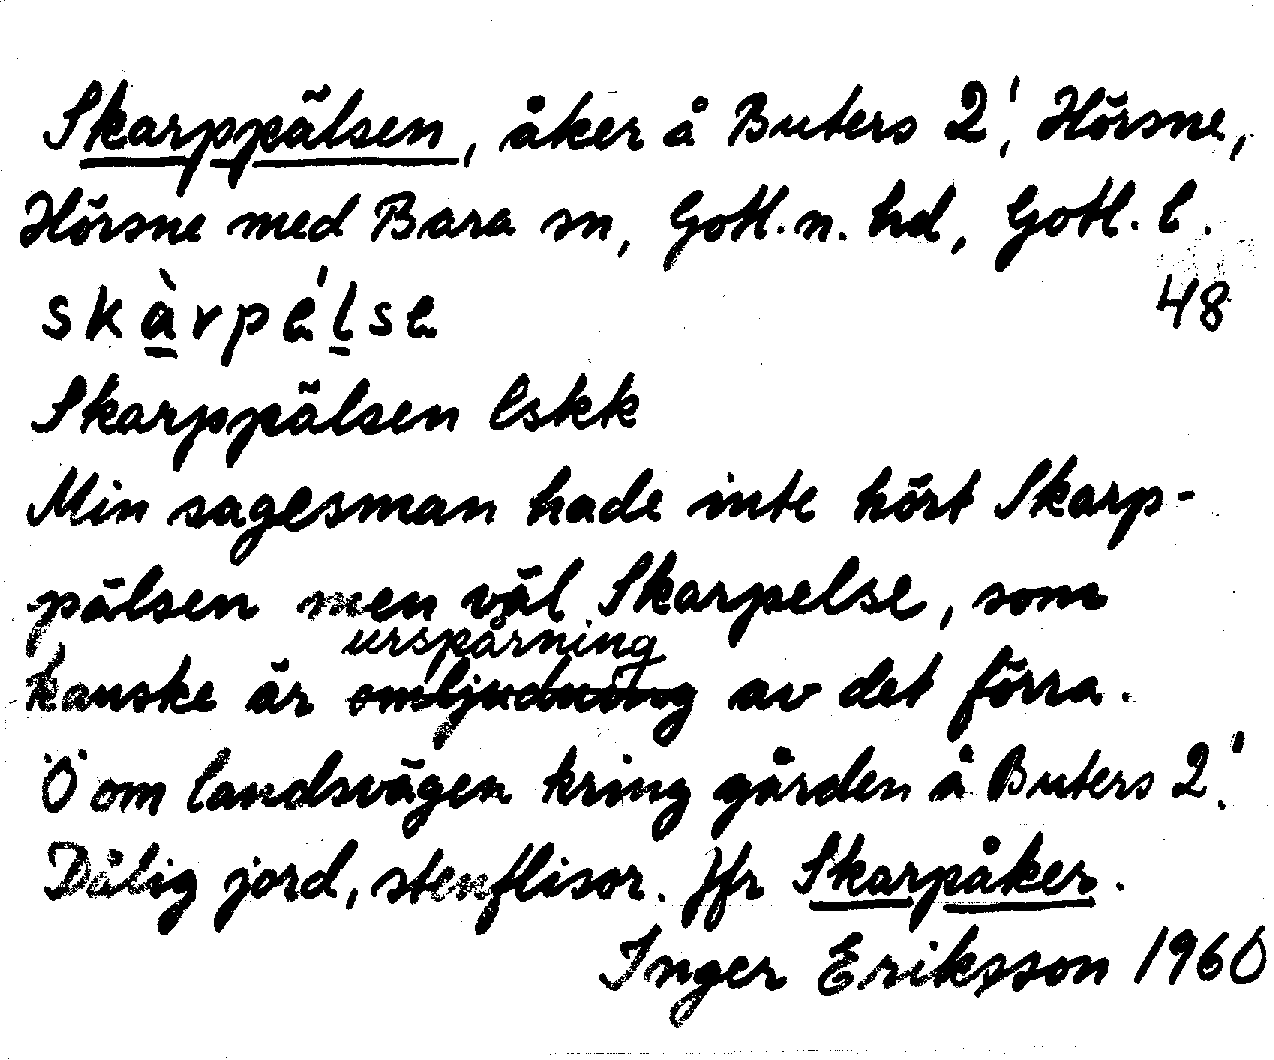 Skarppälsen, åker å Buters 2', Hörsne,
Hörsne med Bara sn, Gotl.n. hd, Gotl. l.
skàrpélse
48
Skarppälsen lskk
Min sagesman hade inte hört Skarp-
pälsen men väl Skarpelse, som
urspårning
kanske är omljudning av det förra.
Ö om landsvägen kring gården å Buters 2'.
Dålig jord, stenflisor. Jfr Skarpåker.
Inger Eriksson 1960